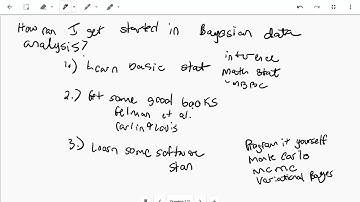 How can I get started in Bayesian data
analysis?
1.) Learn basic stat inference
Math stat
2.) Get some good books
Gelman et al.
Carlin & Louis
3.) Learn some software
Stan
Program it yourself
Monte Carlo
MCMC
Variational Bayes